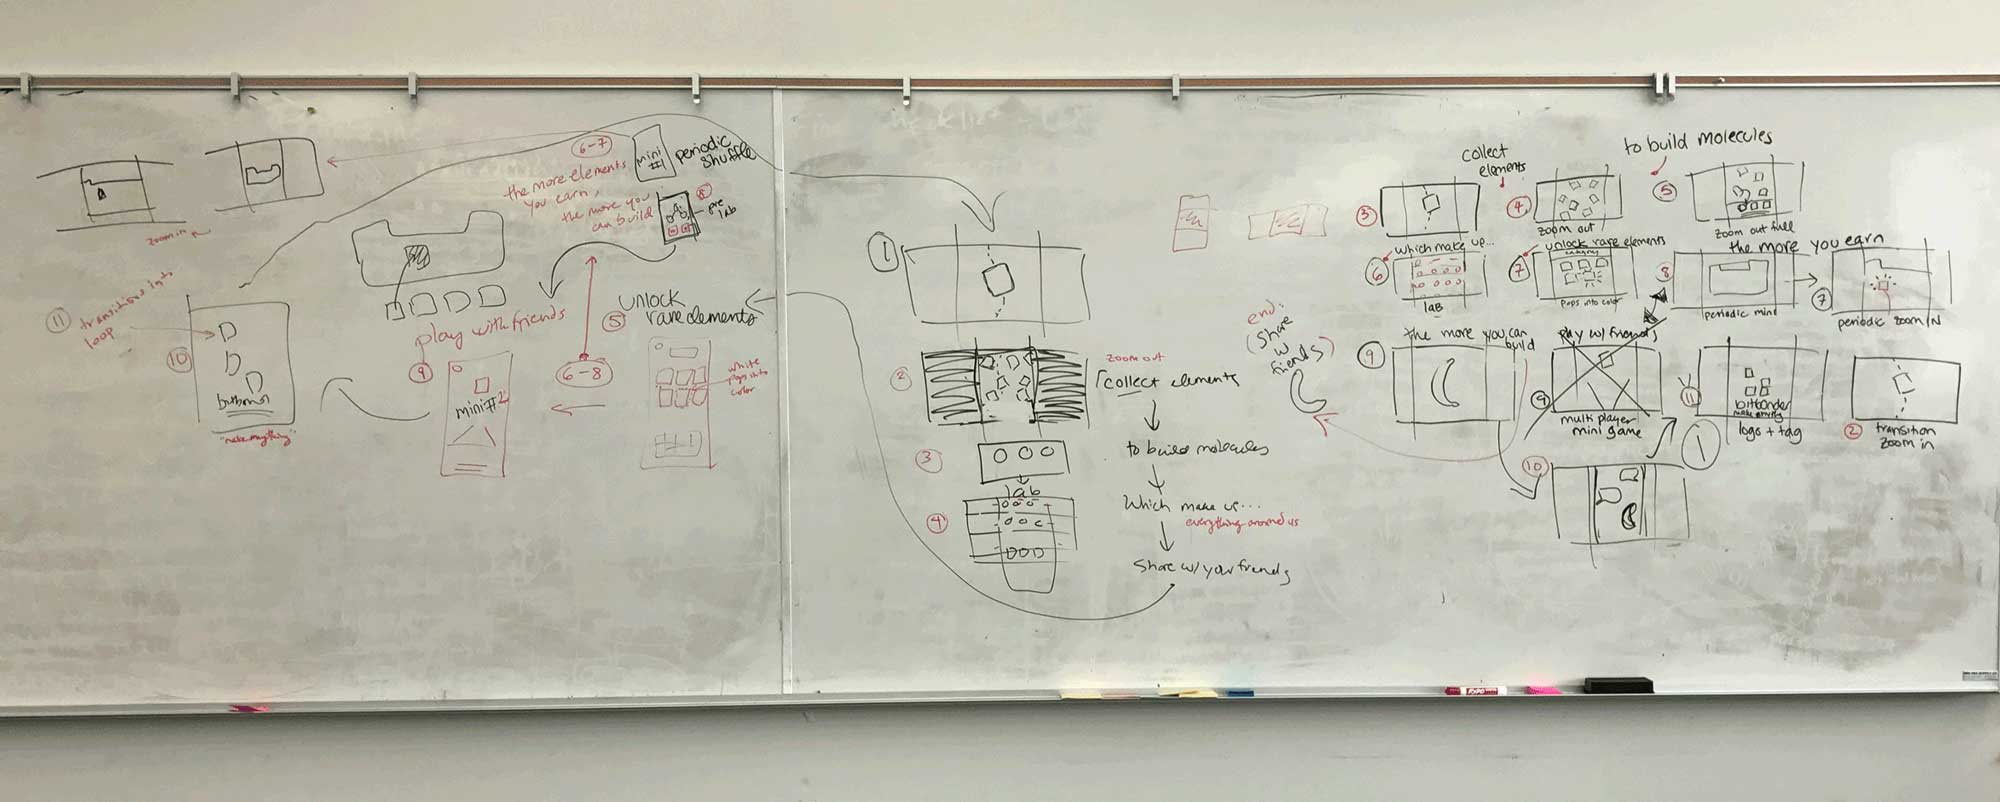 6-7
mini
#1
periodic
shuffle
the more elements
you earn,
the more you
can build
pre
lab
zoom in
11
transitions into
loop
10
"make anything"
play with friends
9
mini#2
6-8
5
unlock
rare elements
white
pops into
color
1
2
zoom out
collect elements
3
to build molecules
lab
4
which make us...
everything around us
share w/ your friends
end:
(share
w
friends)
collect
elements
to build molecules
3
4
zoom out
5
zoom out full
which make up...
6
lab
unlock rare elements
7
pops into color
the more you earn
8
periodic mini
7
periodic zoom IN
the more you can
build
9
play w/ friends
9
multi player
mini game
11
bitbonder
make anything
logo + tag
1
2
transition
zoom in
10
EXPO